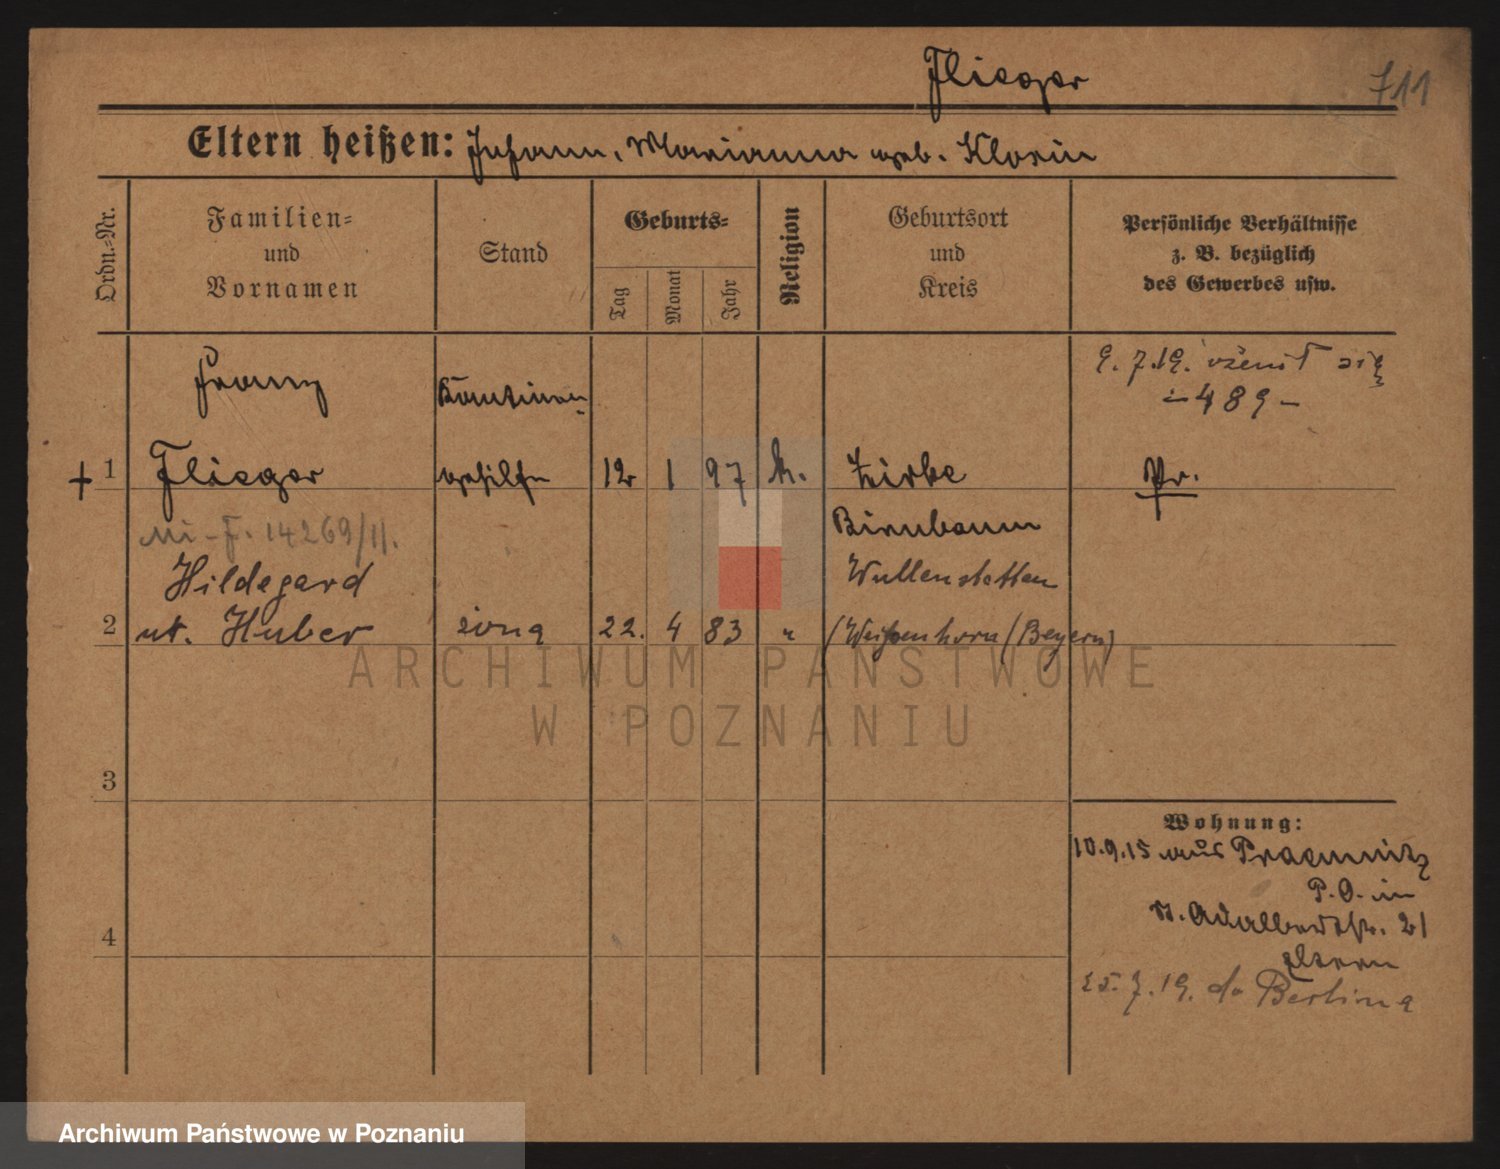 Flieger
711
Eltern heißen: Johann, Marianna geb. Klorin
Ordn.=Nr.
Familien=
und
Vornamen
Stand
Geburts=
Tag
Monat
Jahr
Religion
Geburtsort
und
Kreis
Persönliche Verhältnisse
z. B. bezüglich
des Gewerbes usw.
9. 7. 19. ożenił się
- 489 -
Franz
Kantinen=
+ 1 Flieger gehilfe 12 1 97 k. Zirke Pr.
14269/11.
Birnbaum
Hildegard
Wullenstetten
2 ur. Huber żona 22. 4 83 " (Weißenhorn (Beyern)
ARCHIWUM PAŃSTWOWE
W POZNANIU
3
Wohnung:
10.9.15 aus
P.O. in
St. Adalbertstr. 21
Eltern
4
25. 7. 19. do Berlina
Archiwum Państwowe w Poznaniu